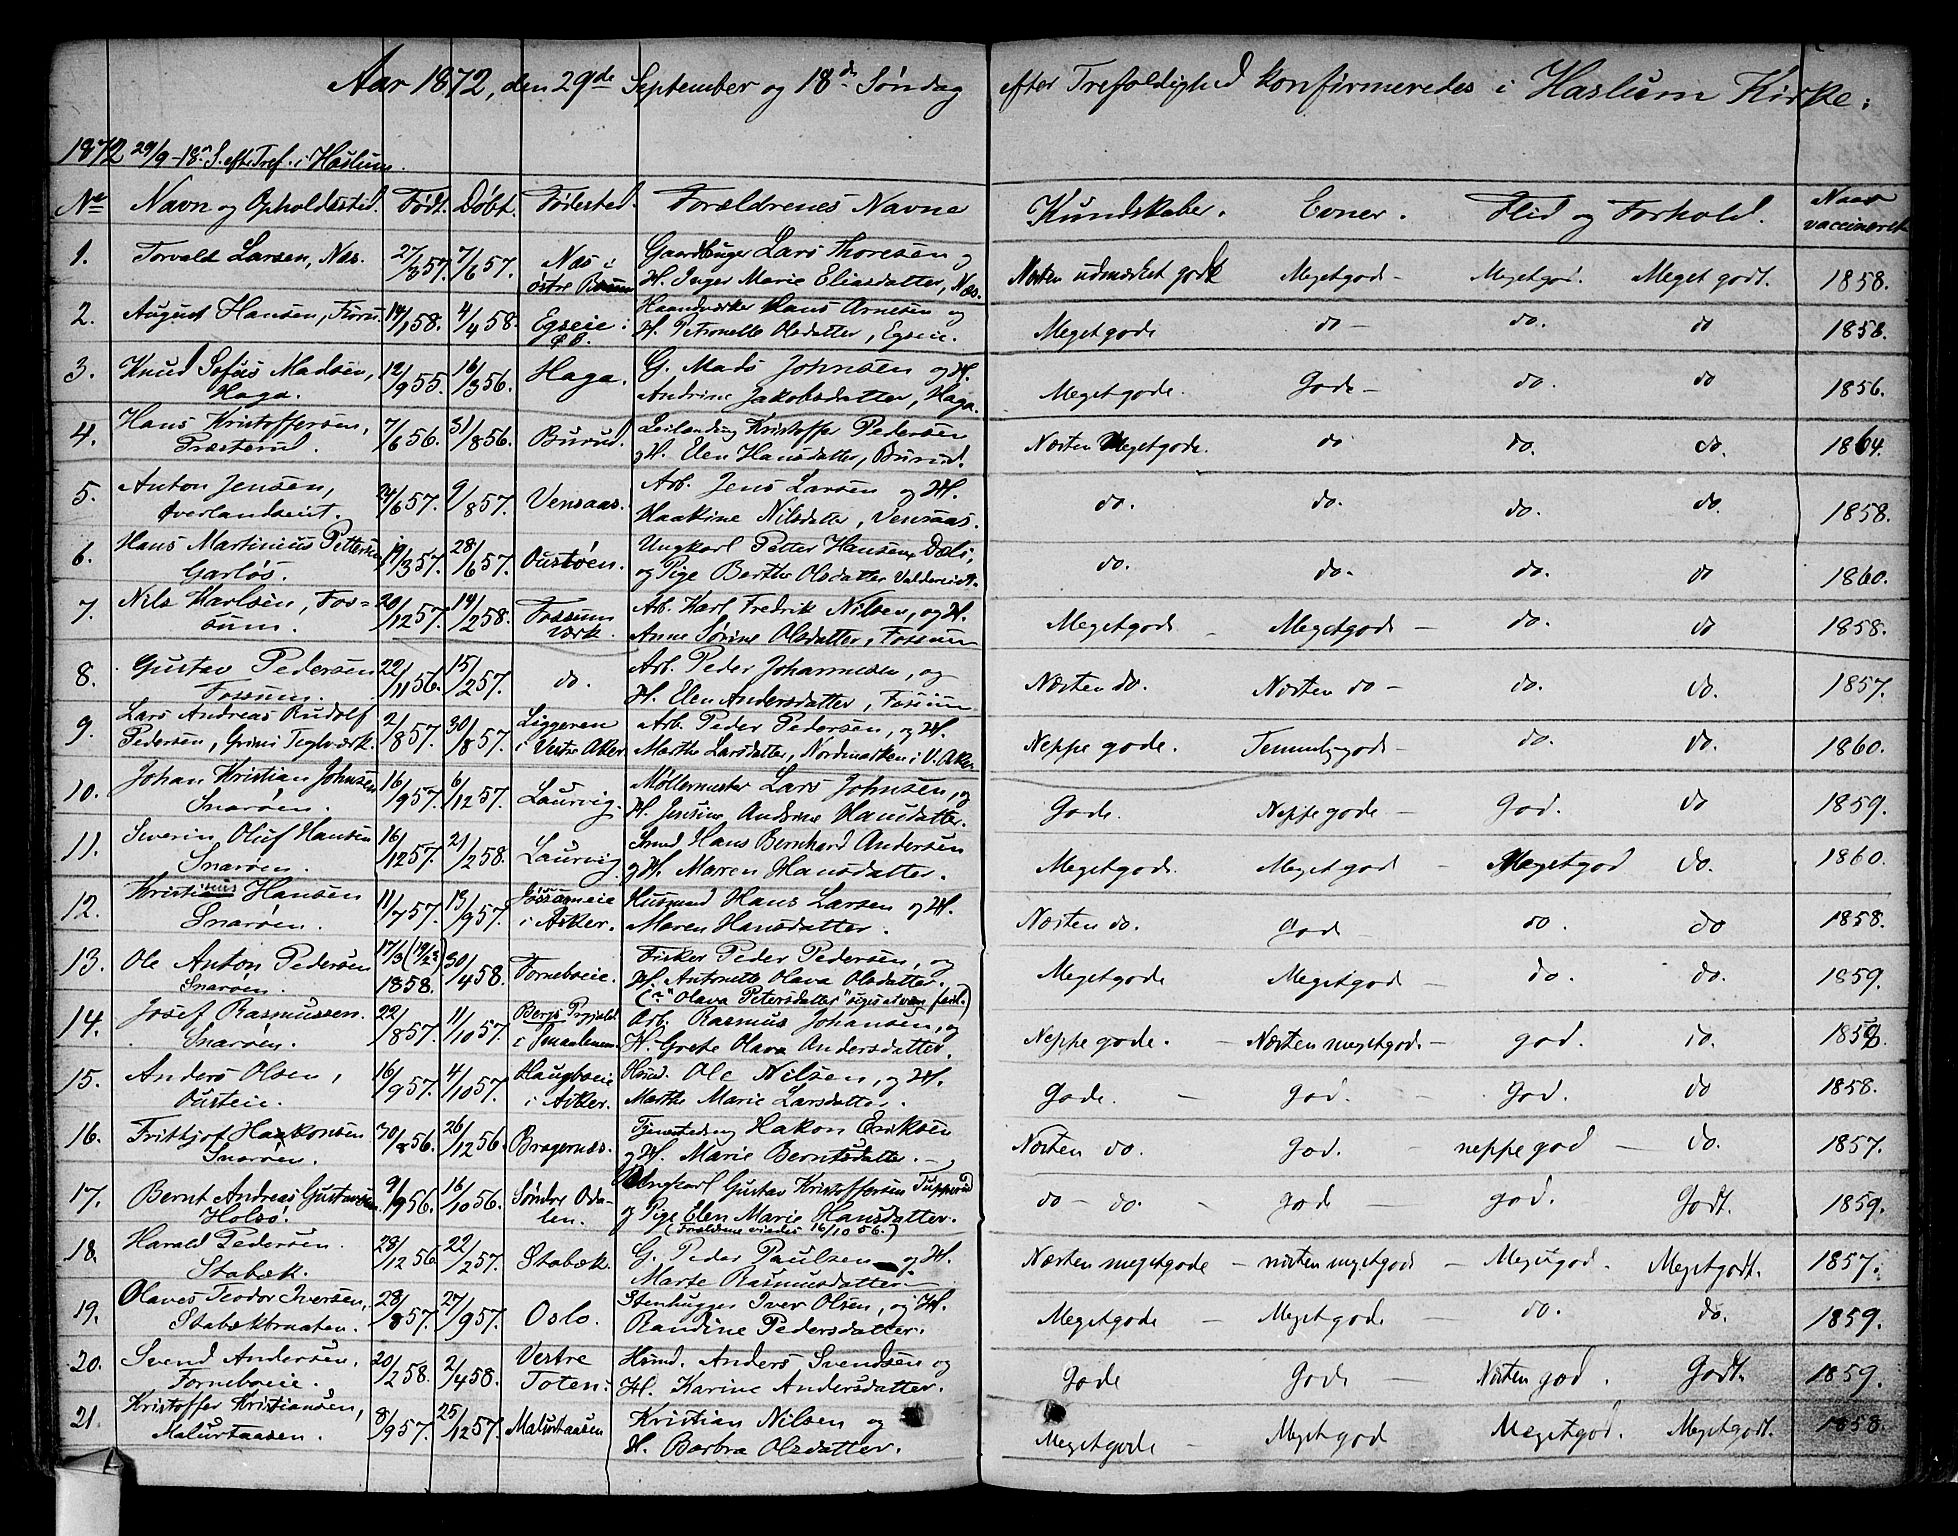 Aar 1872, den 29de September og 18de Søndag efter Trefoldighed konfirmeredes i Haslum Kirke:
1872 29/9 - 18n S. eft. Tref. i Haslum.
No Navn og Opholdssted. Født. Døbt. Fødested. Forældrenes Navne Kundskaber. Evner. Flid og Forhold. Naar
vaccineret
1. Torvald Larsen, Næs. 27/3 57. 7/6 57. Næs i Gaardbruger Lars Thoresen og
østre Bærum H. Inger Marie Eliasdatter, Næs. Næsten udmærket gode Megetgod - Megetgod. Meget godt. 1858.
2. August Hansen, 14/1 58. 4/4 58. Egseie i Haandværker Hans Arnesen og
Ø B. H. Petronelle Olsdatter, Egseie. Megetgode do - do. do 1858.
3. Knud Sofus Madsen, 12/9 55. 16/3 56. Haga. G. Mads Johnsen og H.
Haga. Andrine Jakobsdatter, Haga. Megetgode. Gode - do. do 1856.
4. Hans Kristoffersen, 7/6 56. 31/8 56. Burud. Leilending Kristoffer Pedersen
Præsterud. og H. Elen Hansdatter, Burud. Næsten Megetgode. do do. do. 1864.
5. Anton Jensen, 24/6 57. 9/8 57. Vensaas. Arb. Jens Larsen og H.
Øverlandseiet. Haakine Nilsdatter, Vensaas. do. do. do. do. 1858.
6. Hans Martinius Pettersen 19/3 57. 28/6 57. Oustøen. Ungkarl Petter Hansen, Dæli,
Garløs. og Pige Berthe Olsdatter Valdereiet. do. do. do. do 1860.
7. Nils Karlsen, Fos= 20/12 57. 14/2 58. Fossum Arb. Karl Fredrik Nilsen, og H.
sum. værk. Anne Sørine Olsdatter, Fossum Megetgode - Megetgod - do. do 1858.
8. Gustav Pedersen 22/11 56. 15/2 57. do. Arb. Peder Johannesen, og
Fossum. H. Elen Andersdatter, Fossum Næsten do. Næsten do - do. do. 1857.
9. Lars Andreas Rudolf 2/8 57. 30/8 57. Liggeren Arb. Peder Pedersen, og H.
Pedersen, Grini Teglværk. i Vestre Aker Marthe Larsdatter, Nordmarken i V. Aker Neppe gode. Temmeligod - do. do. 1860.
10. Johan Kristian Johnsen 16/9 57. 6/12 57. Laurvig. Møllermester Lars Johnsen, og
Snarøen. H. Jensine Andrine Hansdatter. Gode. Neppe gode. God. do 1859.
11. Severin Oluf Hansen 16/12 57. 21/2 58. Laurvig Smed Hans Bernhard Andersen
Snarøen. og H. Maren Hansdatter. Megetgode. Megetgod - Megetgod do. 1860.
12. Kristianius Hansen 11/7 57. 13/9 57. Husmand Hans Larsen og H.
Snarøen. i Asker. Maren Hansdatter. Næsten do. god - do. do 1858.
13. Ole Anton Pedersen 17/3 (19/2?) 30/4 58. Forneboeie. Fisker Peder Pedersen, og
Snarøen. 1858. H. Antonette Olava Olsdatter. Megetgode Megetgod - do. do. 1859.
("Olava Petersdatter" siges at være feil.)
14. Josef Rasmussen. 22/8 57. 11/10 57. Bergs Prgjeld Arb. Rasmus Johansen, og
Snarøen. i Smaalenene H. Grete Olava Andersdatter. Neppe gode. - Næsten megetgod. - god. do. 1859.
15. Anders Olsen, 16/9 57. 4/10 57. Haugboeie Hsmd. Ole Nilsen, og H.
Ousteie. i Asker. Marthe Marie Larsdatter. Gode. - god. - God. do 1858.
16. Frittjof Haakonsen 30/8 56. 26/12 56. Bragernæs. Tjenestedreng Hakon Eriksen
Snarøen. og H. Marie Berntsdatter. - Næsten do. god. - neppe god - do. 1857.
17. Bernt Andreas Gustavsen 9/9 56. 16/10 56. Søndre Oda- Ungkarl Gustav Kristoffersen Tupperud
Holsø. len. og Pige Elen Marie Hansdatter. do - do. god - god. - Godt. 1859.
(Forældrene viedes 16/10 56.)
18. Harald Pedersen. 28/12 56 22/2 57. Stabæk. G. Peder Paulsen og H.
Stabæk. Marte Rasmusdatter. Næsten megetgode - næsten megetgod - Megetgod. Megetgodt. 1857.
19. Olaves Teodor Iversen, 28/8 57. 27/9 57. Oslo. Stenhugger Iver Olsen, og H.
Stabækbraaten. Randine Pedersdatter. Megetgode - Megetgod do. do. 1859.
20. Svend Andersen, 20/2 58. 2/4 58. Vestre Hsmd. Anders Svendsen og
Forneboeie. Toten. H. Karine Andersdatter. Gode God - Næsten god. Godt. 1859.
21. Kristoffer Kristiansen, 8/9 57. 25/12 57. Malurtaasen Kristian Nilsen og
Malurtaasen. H. Barbra Olsdatter. Megetgode - Megetgod Megetgod. Megetgodt. 1858.